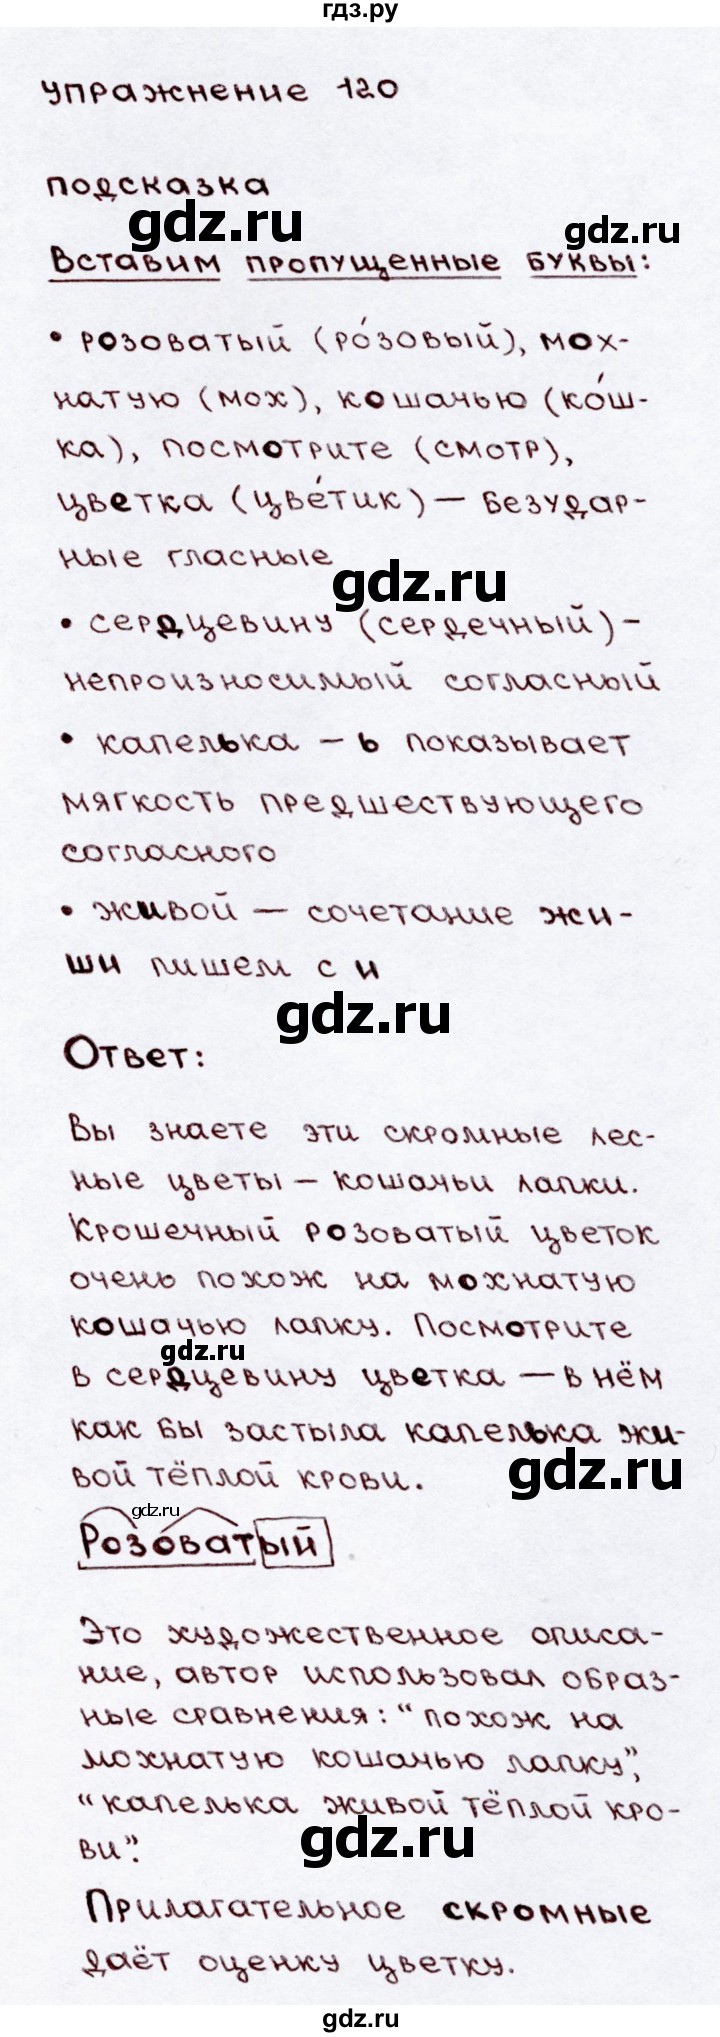 гдз.ру
упражнение 120
подсказка
gdz.ru
gdz.ru
Вставим пропущенные буквы:
• розоватый (ро́зовый), мох-
натую (мох), кошачью (ко́ш-
ка), посмотрите (смотр),
цветка (цве́тик) — безудар-
ные гласные
gdz.ru
• сердцевину (сердечный) -
непроизносимый согласный
• капелька - ь показывает
мягкость предшествующего
согласного
• живой — сочетание жи-
ши пишем с и
gdz.ru
Ответ:
Вы знаете эти скромные лес-
ные цветы - кошачьи лапки.
Крошечный розоватый цветок
очень похож на мохнатую
кошачью лапку. Посмотрите
gdz.ru
в сердцевину цветка — в нём
как бы застыла капелька жи-
вой тёплой крови.
gdz.ru
gdz.ru
Розоватый
Это художественное описа-
ние, автор использовал образ-
ные сравнения: "похож на
мохнатую кошачью лапку",
"капелька живой тёплой кро-
ви".
gdz.ru
Прилагательное скромные
даёт оценку цветку.
gdz.ru